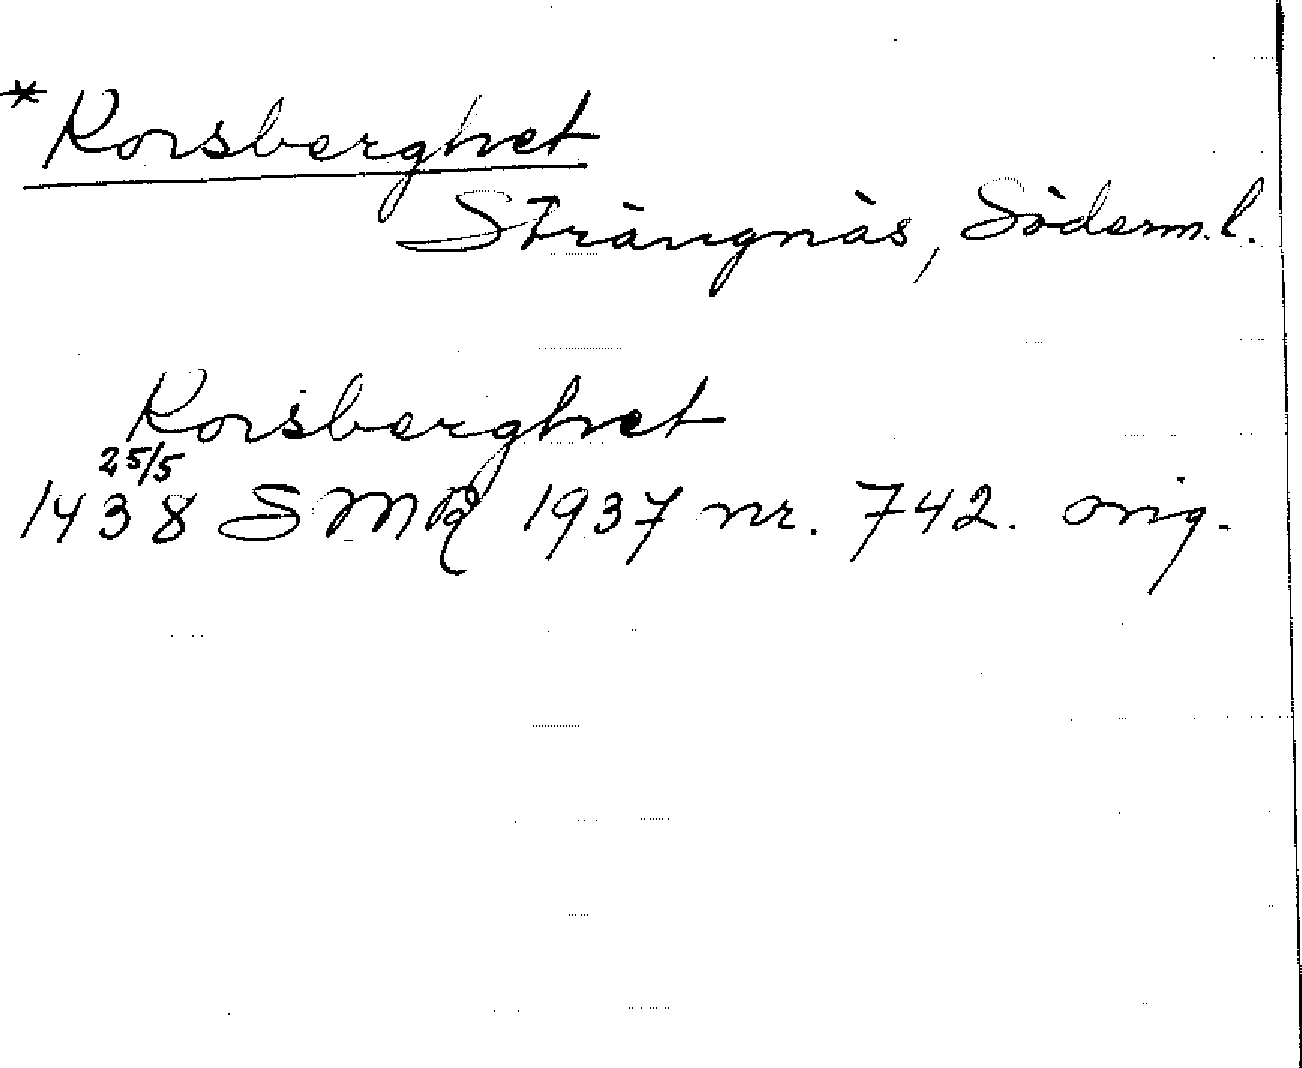 *Korsberghet
Strängnäs, Söderm. l.
Korsberghet
25/5
1438 SMR 1937 nr. 742. orig.